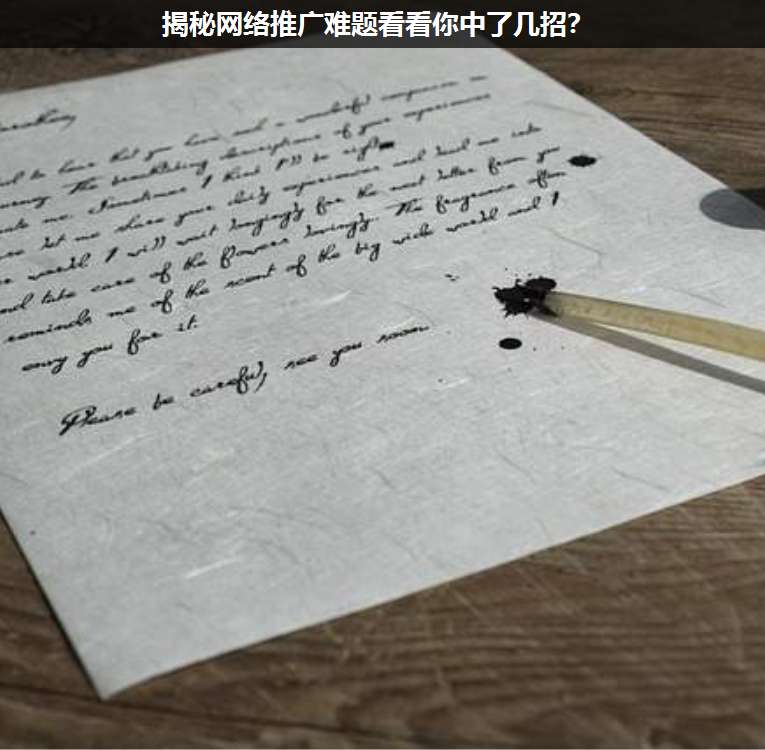 揭秘网络推广难题看看你中了几招？
to hear that you have such a wonderful companion on
The breathtaking descriptions of your experiences
me. Sometimes I think I'll be right
let me share your daily experiences and send me into
world I will wait longingly for the next letter from you
and take care of the flowers lovingly. The fragrance often
reminds me of the scent of the big wide world and I
envy you for it.
Please be careful, see you soon.